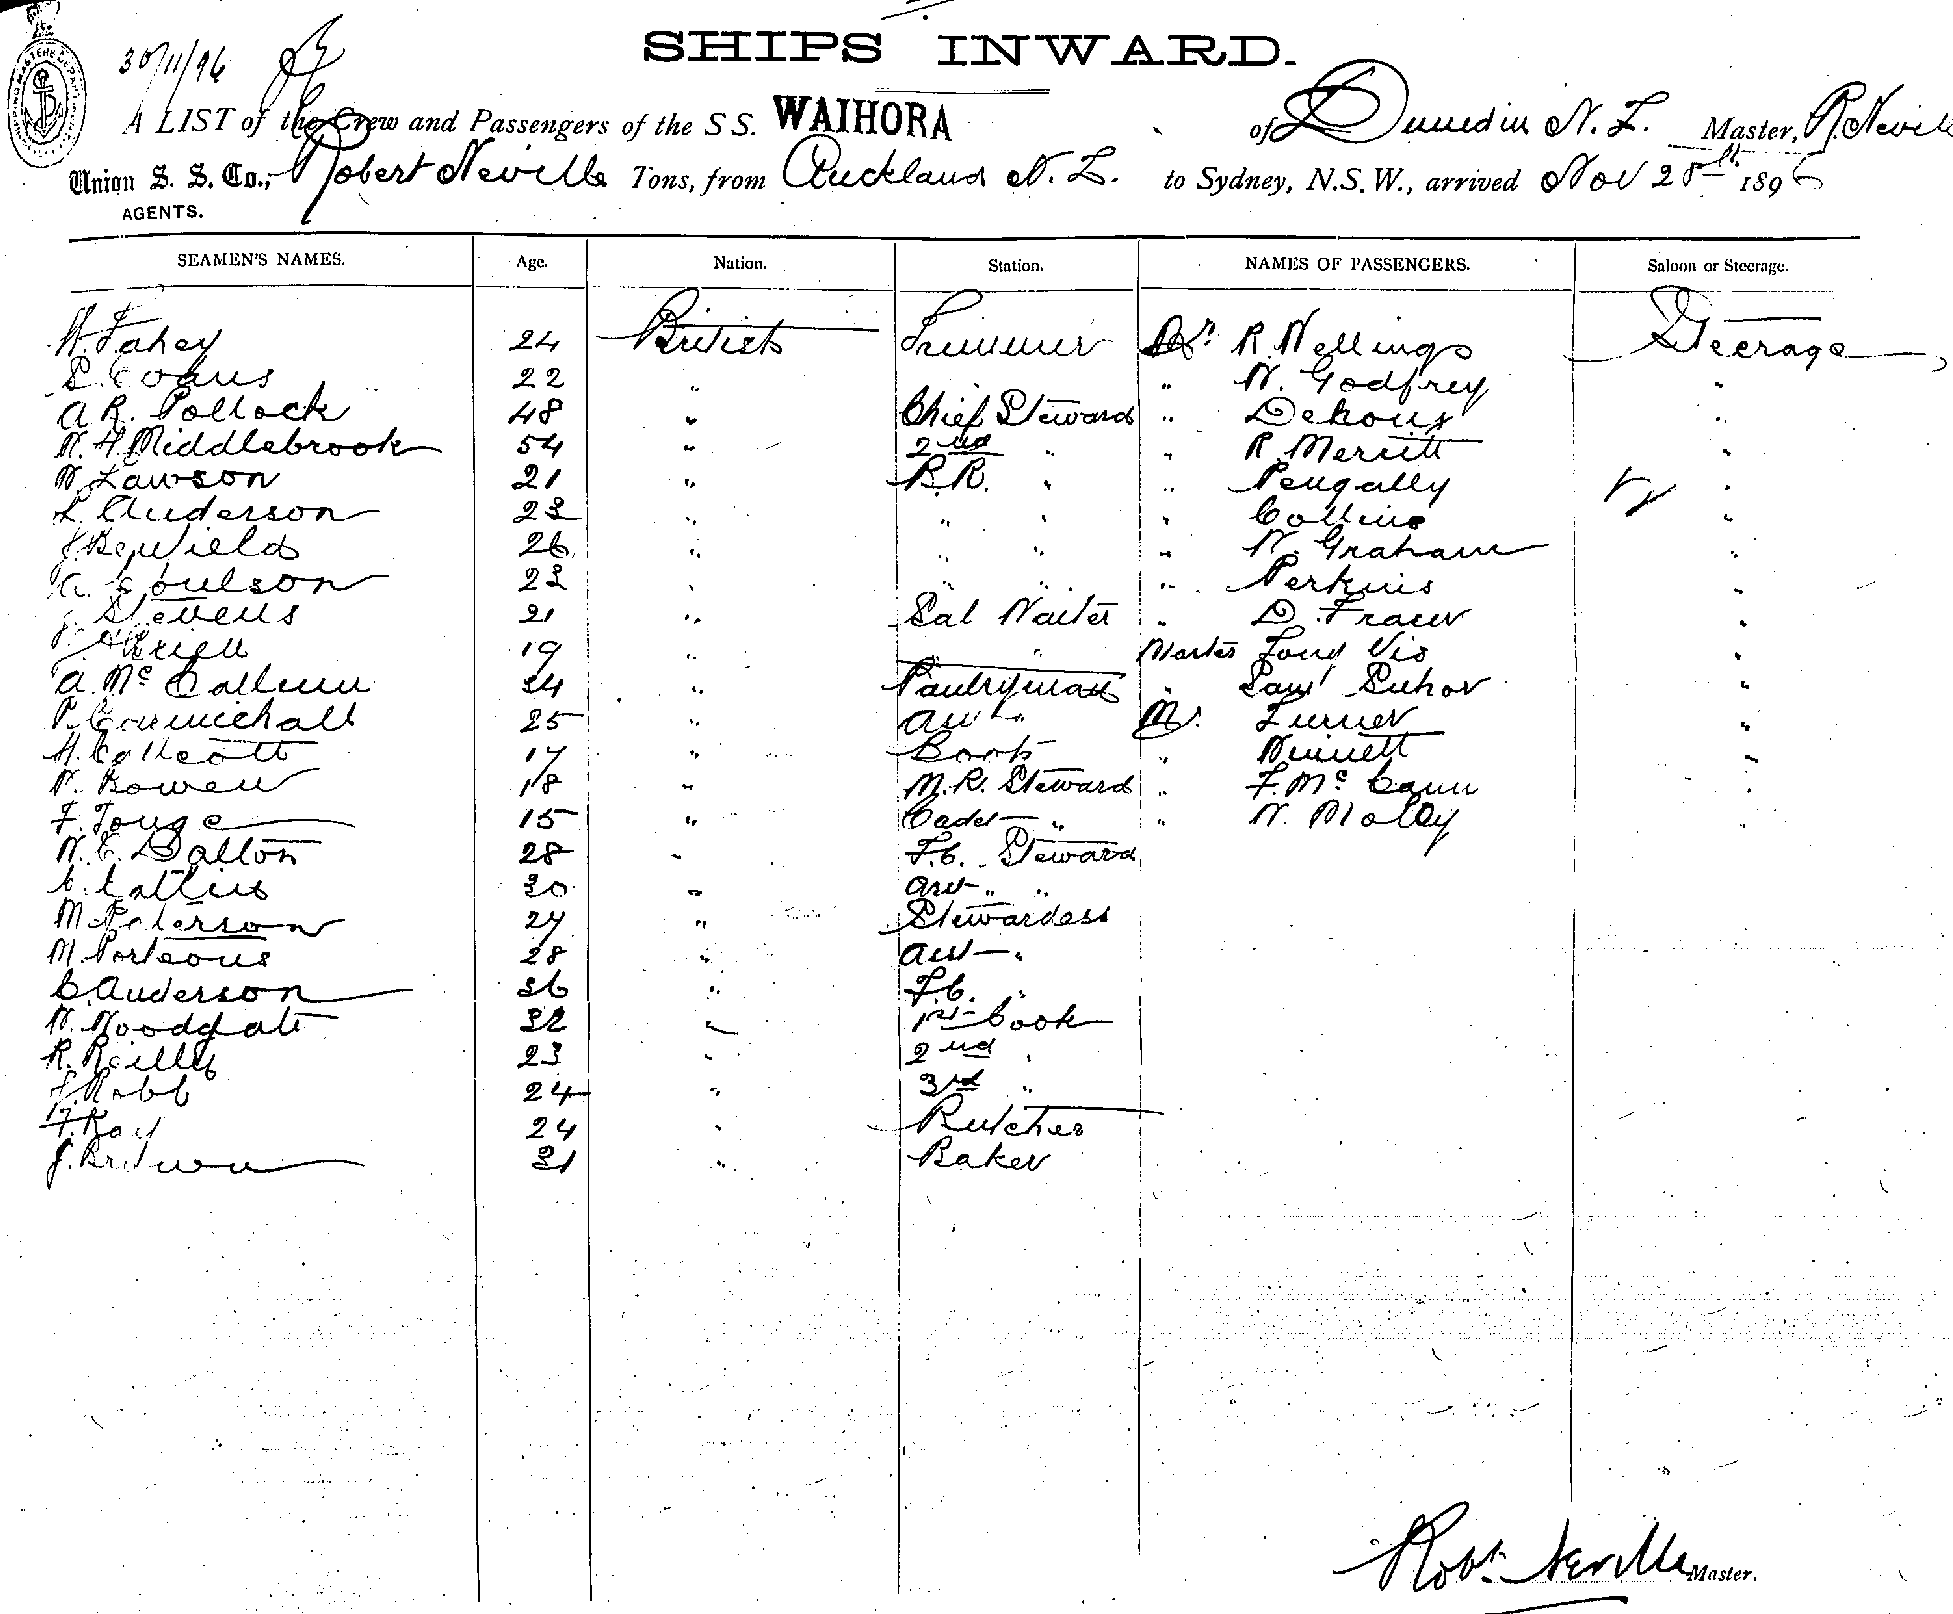 30/11/96
SHIPS INWARD.
A LIST of the Crew and Passengers of the S S. WAIHORA of Dunedin N. Z. Master, R. Nevill
Union S. S. Co., Robert Neville Tons, from Auckland N. Z. to Sydney, N.S.W., arrived Nov 28th 1896
AGENTS.
SEAMEN'S NAMES. Age. Nation. Station. NAMES OF PASSENGERS. Saloon or Steerage.
W. Fahey 24 British Trimmer Mr. R. Nellings Steerage
Evans 22 " " W. Godfrey "
A R. Pollock 48 " Chief Steward " "
W. H Middlebrook 54 " 2nd " " R. Merritt "
W Lawson 21 " B.R. " " Pengally "
L Anderson 23 " " " " Collins "
J 26 " " " " W. Graham "
A. Coulson 23 " " " " Perkins "
J. Stevens 21 " Sal Waiter " D. Fraser "
19 " " " Master "
A. Mc Callum 34 " Pantryman " "
P. Carmichall 25 " " Mr. Turner "
H. 17 " "
W. Bowen 18 " M.R. Steward " F. Mc Cann "
F. Tonge 15 " Cadet " " W. Molloy "
W. C. Dalton 28 " F.C. Steward
30 " " "
M. Paterson 27 " Stewardess
M Porteous 28 " "
C. Anderson 36 " F.C. "
W. Woodgate 32 " 1st Cook
R. Reilly 23 " 2nd "
J. Robb 24 " 3rd "
F. Ray 24 " Butcher
J. Brown 31 " Baker
Robt. Neville Master.